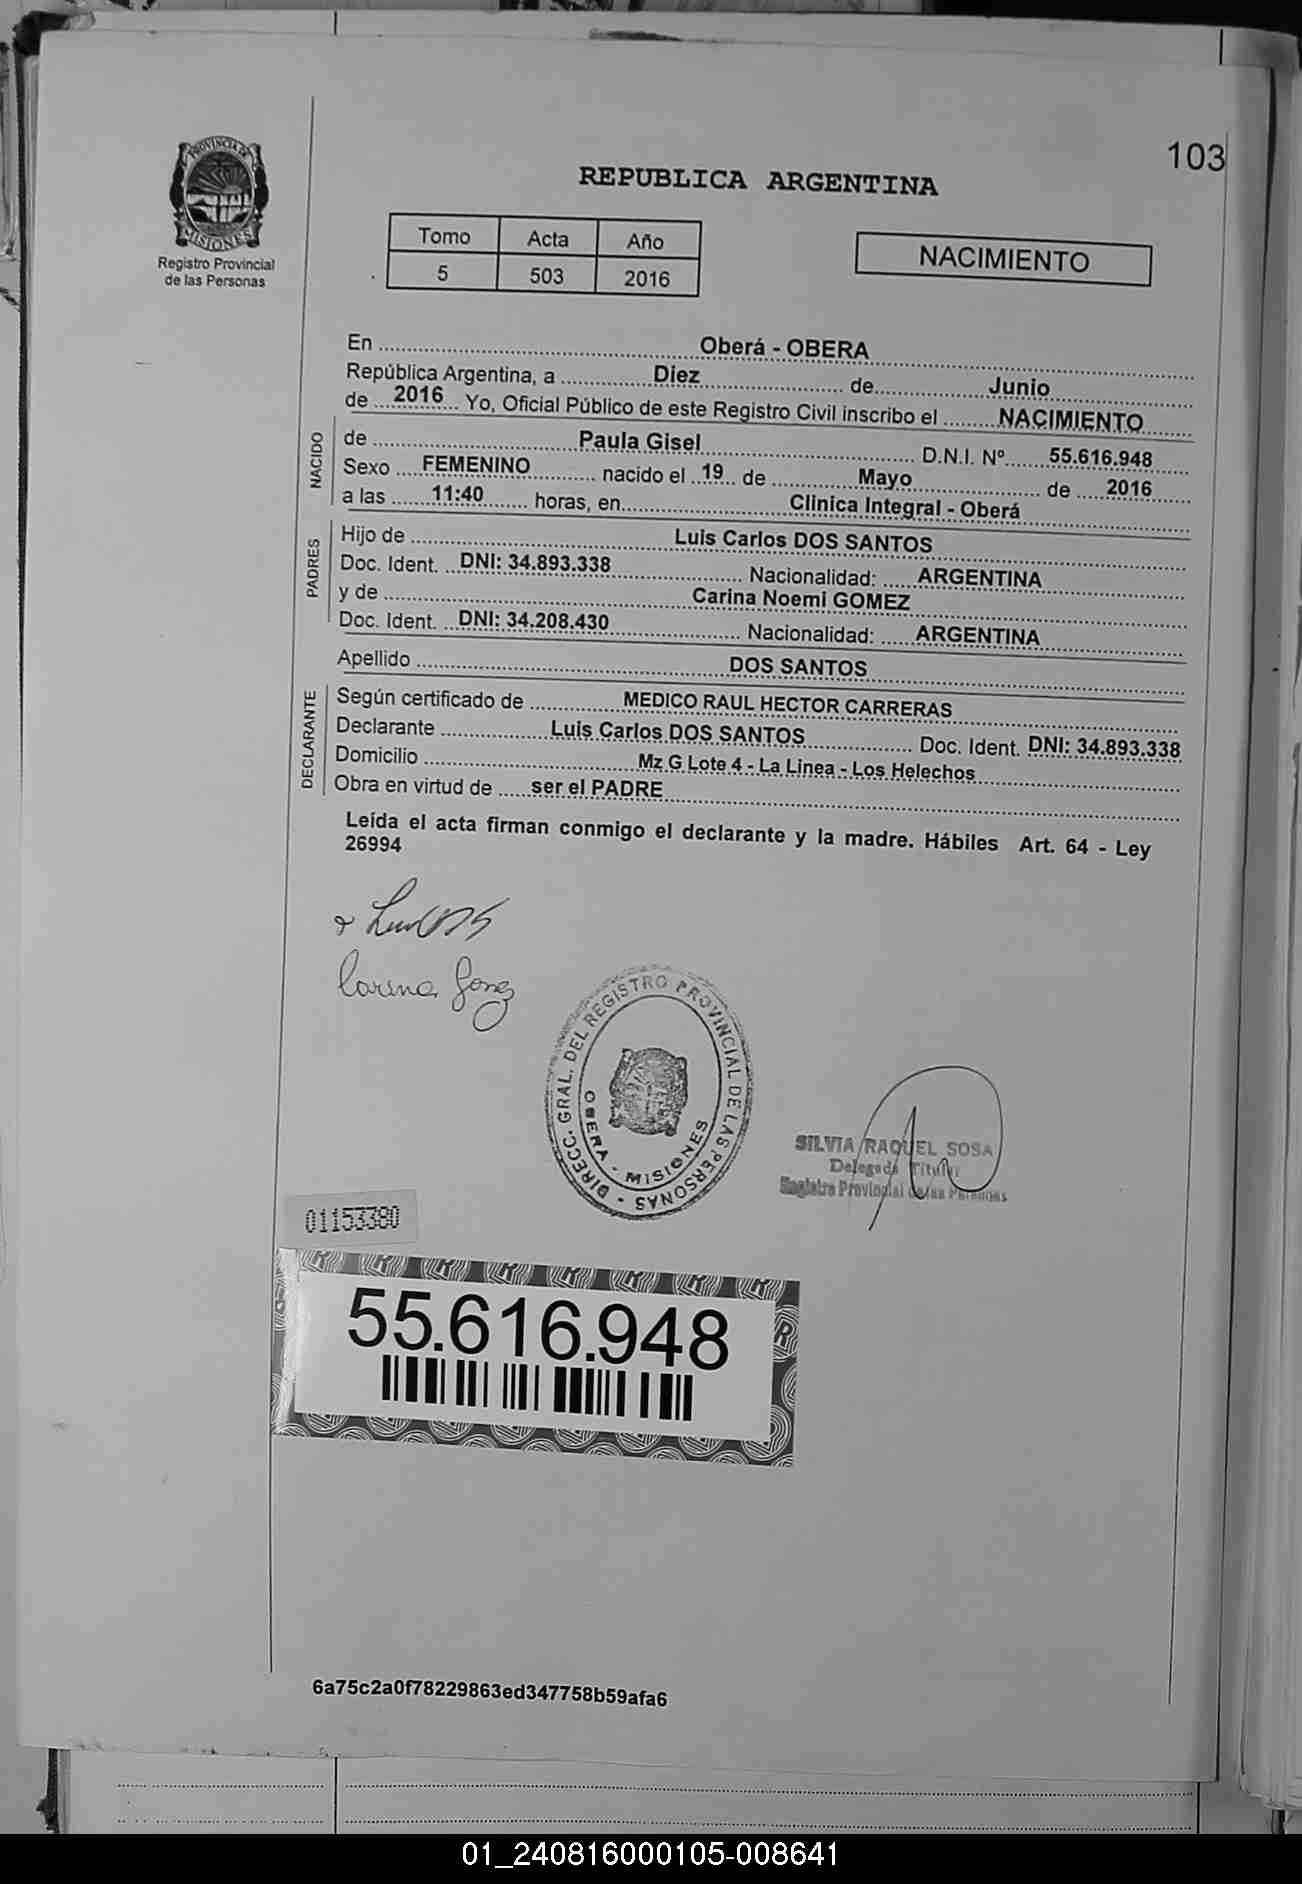 103
PROVINCIA DE
MISIONES
Registro Provincial
de las Personas
REPUBLICA ARGENTINA
Tomo Acta Año
5 503 2016
NACIMIENTO
En Oberá - OBERA
República Argentina, a Diez de Junio
de 2016 Yo, Oficial Público de este Registro Civil inscribo el NACIMIENTO
NACIDO
de Paula Gisel D.N.I. Nº 55.616.948
Sexo FEMENINO nacido el 19 de Mayo de 2016
a las 11:40 horas, en Clinica Integral - Oberá
PADRES
Hijo de Luis Carlos DOS SANTOS
Doc. Ident. DNI: 34.893.338 Nacionalidad: ARGENTINA
y de Carina Noemi GOMEZ
Doc. Ident. DNI: 34.208.430 Nacionalidad: ARGENTINA
Apellido DOS SANTOS
DECLARANTE
Según certificado de MEDICO RAUL HECTOR CARRERAS
Declarante Luis Carlos DOS SANTOS Doc. Ident. DNI: 34.893.338
Domicilio Mz G Lote 4 - La Linea - Los Helechos
Obra en virtud de ser el PADRE
Leída el acta firman conmigo el declarante y la madre. Hábiles Art. 64 - Ley
26994
Carina
DIRECC. GRAL. DEL REGISTRO PROVINCIAL DE LAS PERSONAS -
OBERA - MISIONES
SILVIA RAQUEL SOSA
Delegada Titular
Registro Provincial de las Personas
01153380
55.616.948
6a75c2a0f78229863ed347758b59afa6
01_240816000105-008641